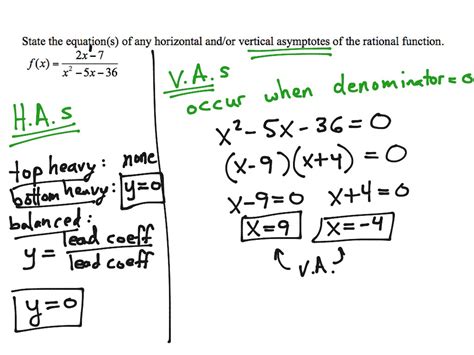 State the equation(s) of any horizontal and/or vertical asymptotes of the rational function.
f(x) = (2x¹ − 7)/(x² − 5x − 36)
H.A.s
top heavy: none
bottom heavy: y=0
balanced:
y = lead coeff / lead coeff
y=0
V.A.s
occur when denominator=0
x² − 5x − 36 = 0
(x−9)(x+4) = 0
x−9=0 x+4=0
x=9 x=−4
V.A.